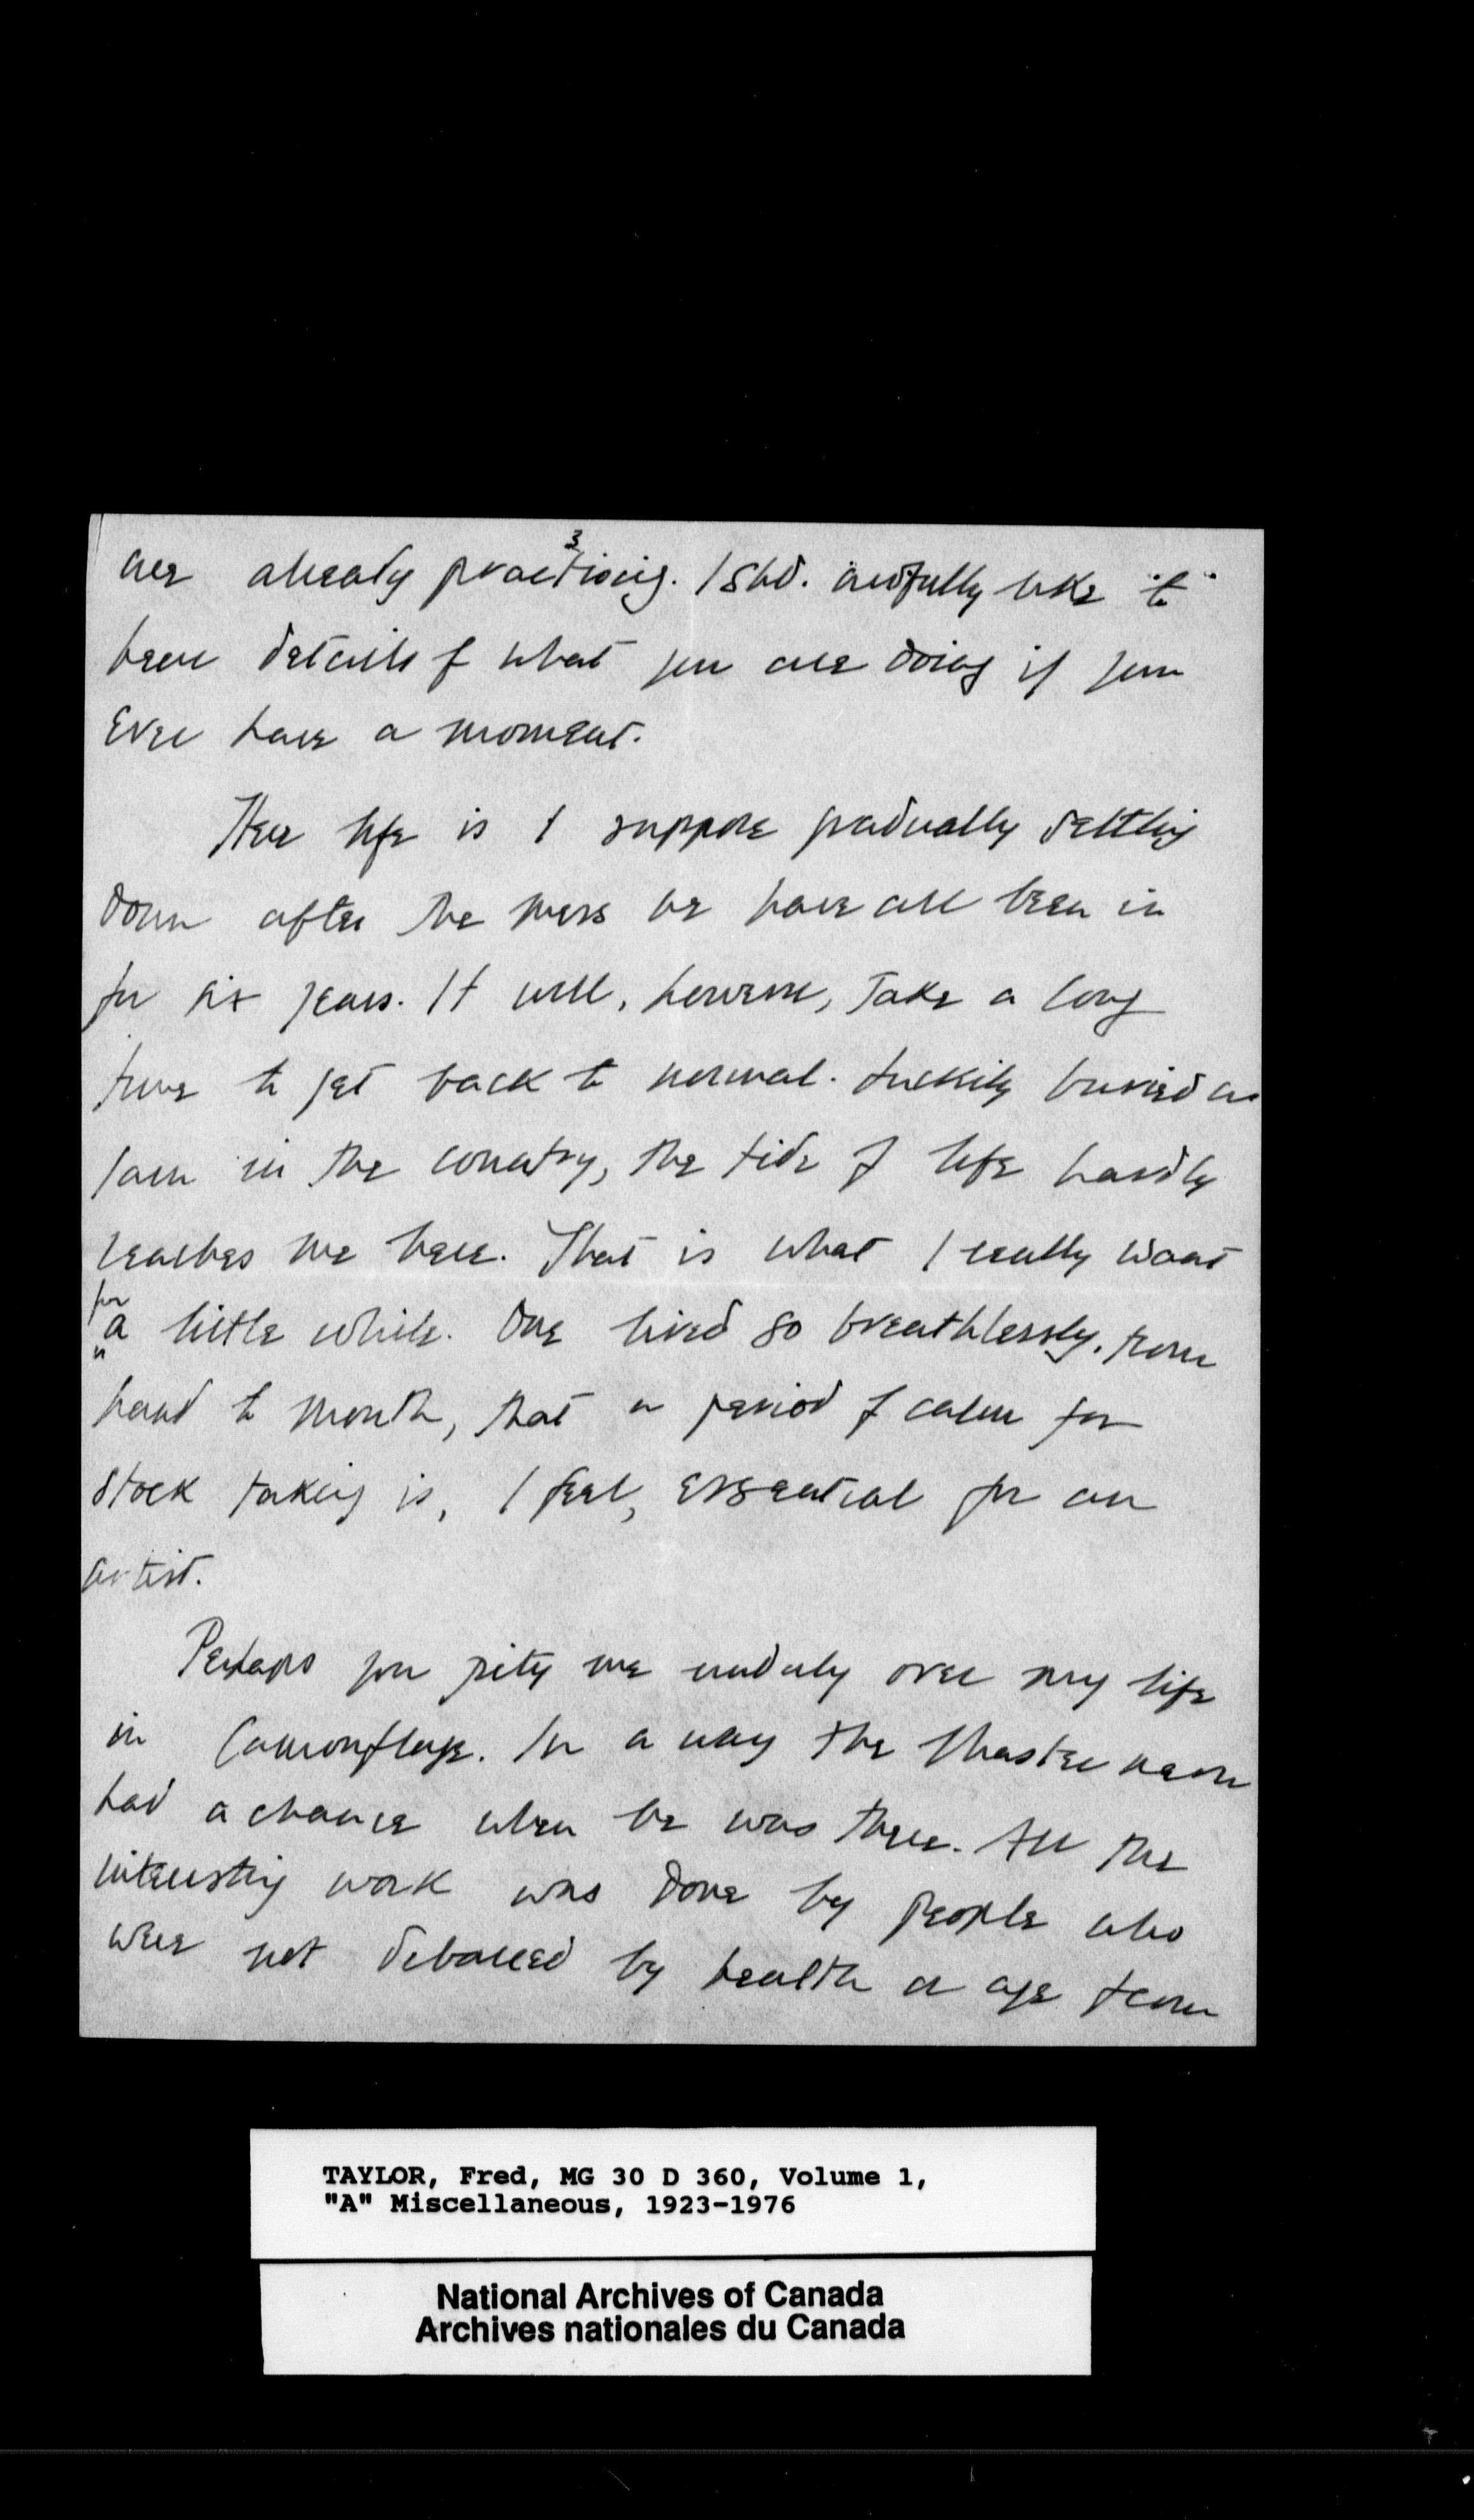 3
are already practising. I shd. awfully like to
hear details of what you are doing if you
ever have a moment.
Here life is I suppose gradually settling
down after the mess we have all been in
for six years. It will, however, take a long
time to get back to normal. Luckily buried as
I am in the country, the tide of life hardly
reaches me here. That is what I really want
for
a little while. One lived so breathlessly, from
hand to mouth, that a period of calm for
stock taking is, I feel, essential for an
artist.
Perhaps you pity me unduly over my life
in Camouflage. In a way the never
had a chance when he was there. All the
interesting work was done by people who
were not debarred by health or age from
TAYLOR, Fred, MG 30 D 360, Volume 1,
"A" Miscellaneous, 1923-1976
National Archives of Canada
Archives nationales du Canada